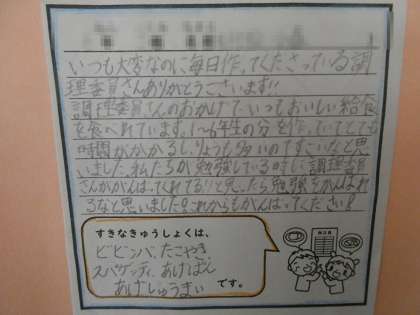 いつも大変なのに毎日作ってくださっている調
理委員さんありがとうございます!!
調理委員さんのおかげでいつもおいしい給食
を食べれています。1〜6年生の分を作っていてとても
時間がかかるし、りょうも多いのですごいなと思
いました。私たちが勉強している時に調理委員
さんががんばってくれてる!!と思ったら勉強をがんばれ
るなと思いました!これからもがんばってください!
すきなきゅうしょくは、
ビビンバ、たこやき、
スパゲッティ、あげぱん
あげしゅうまい
です。